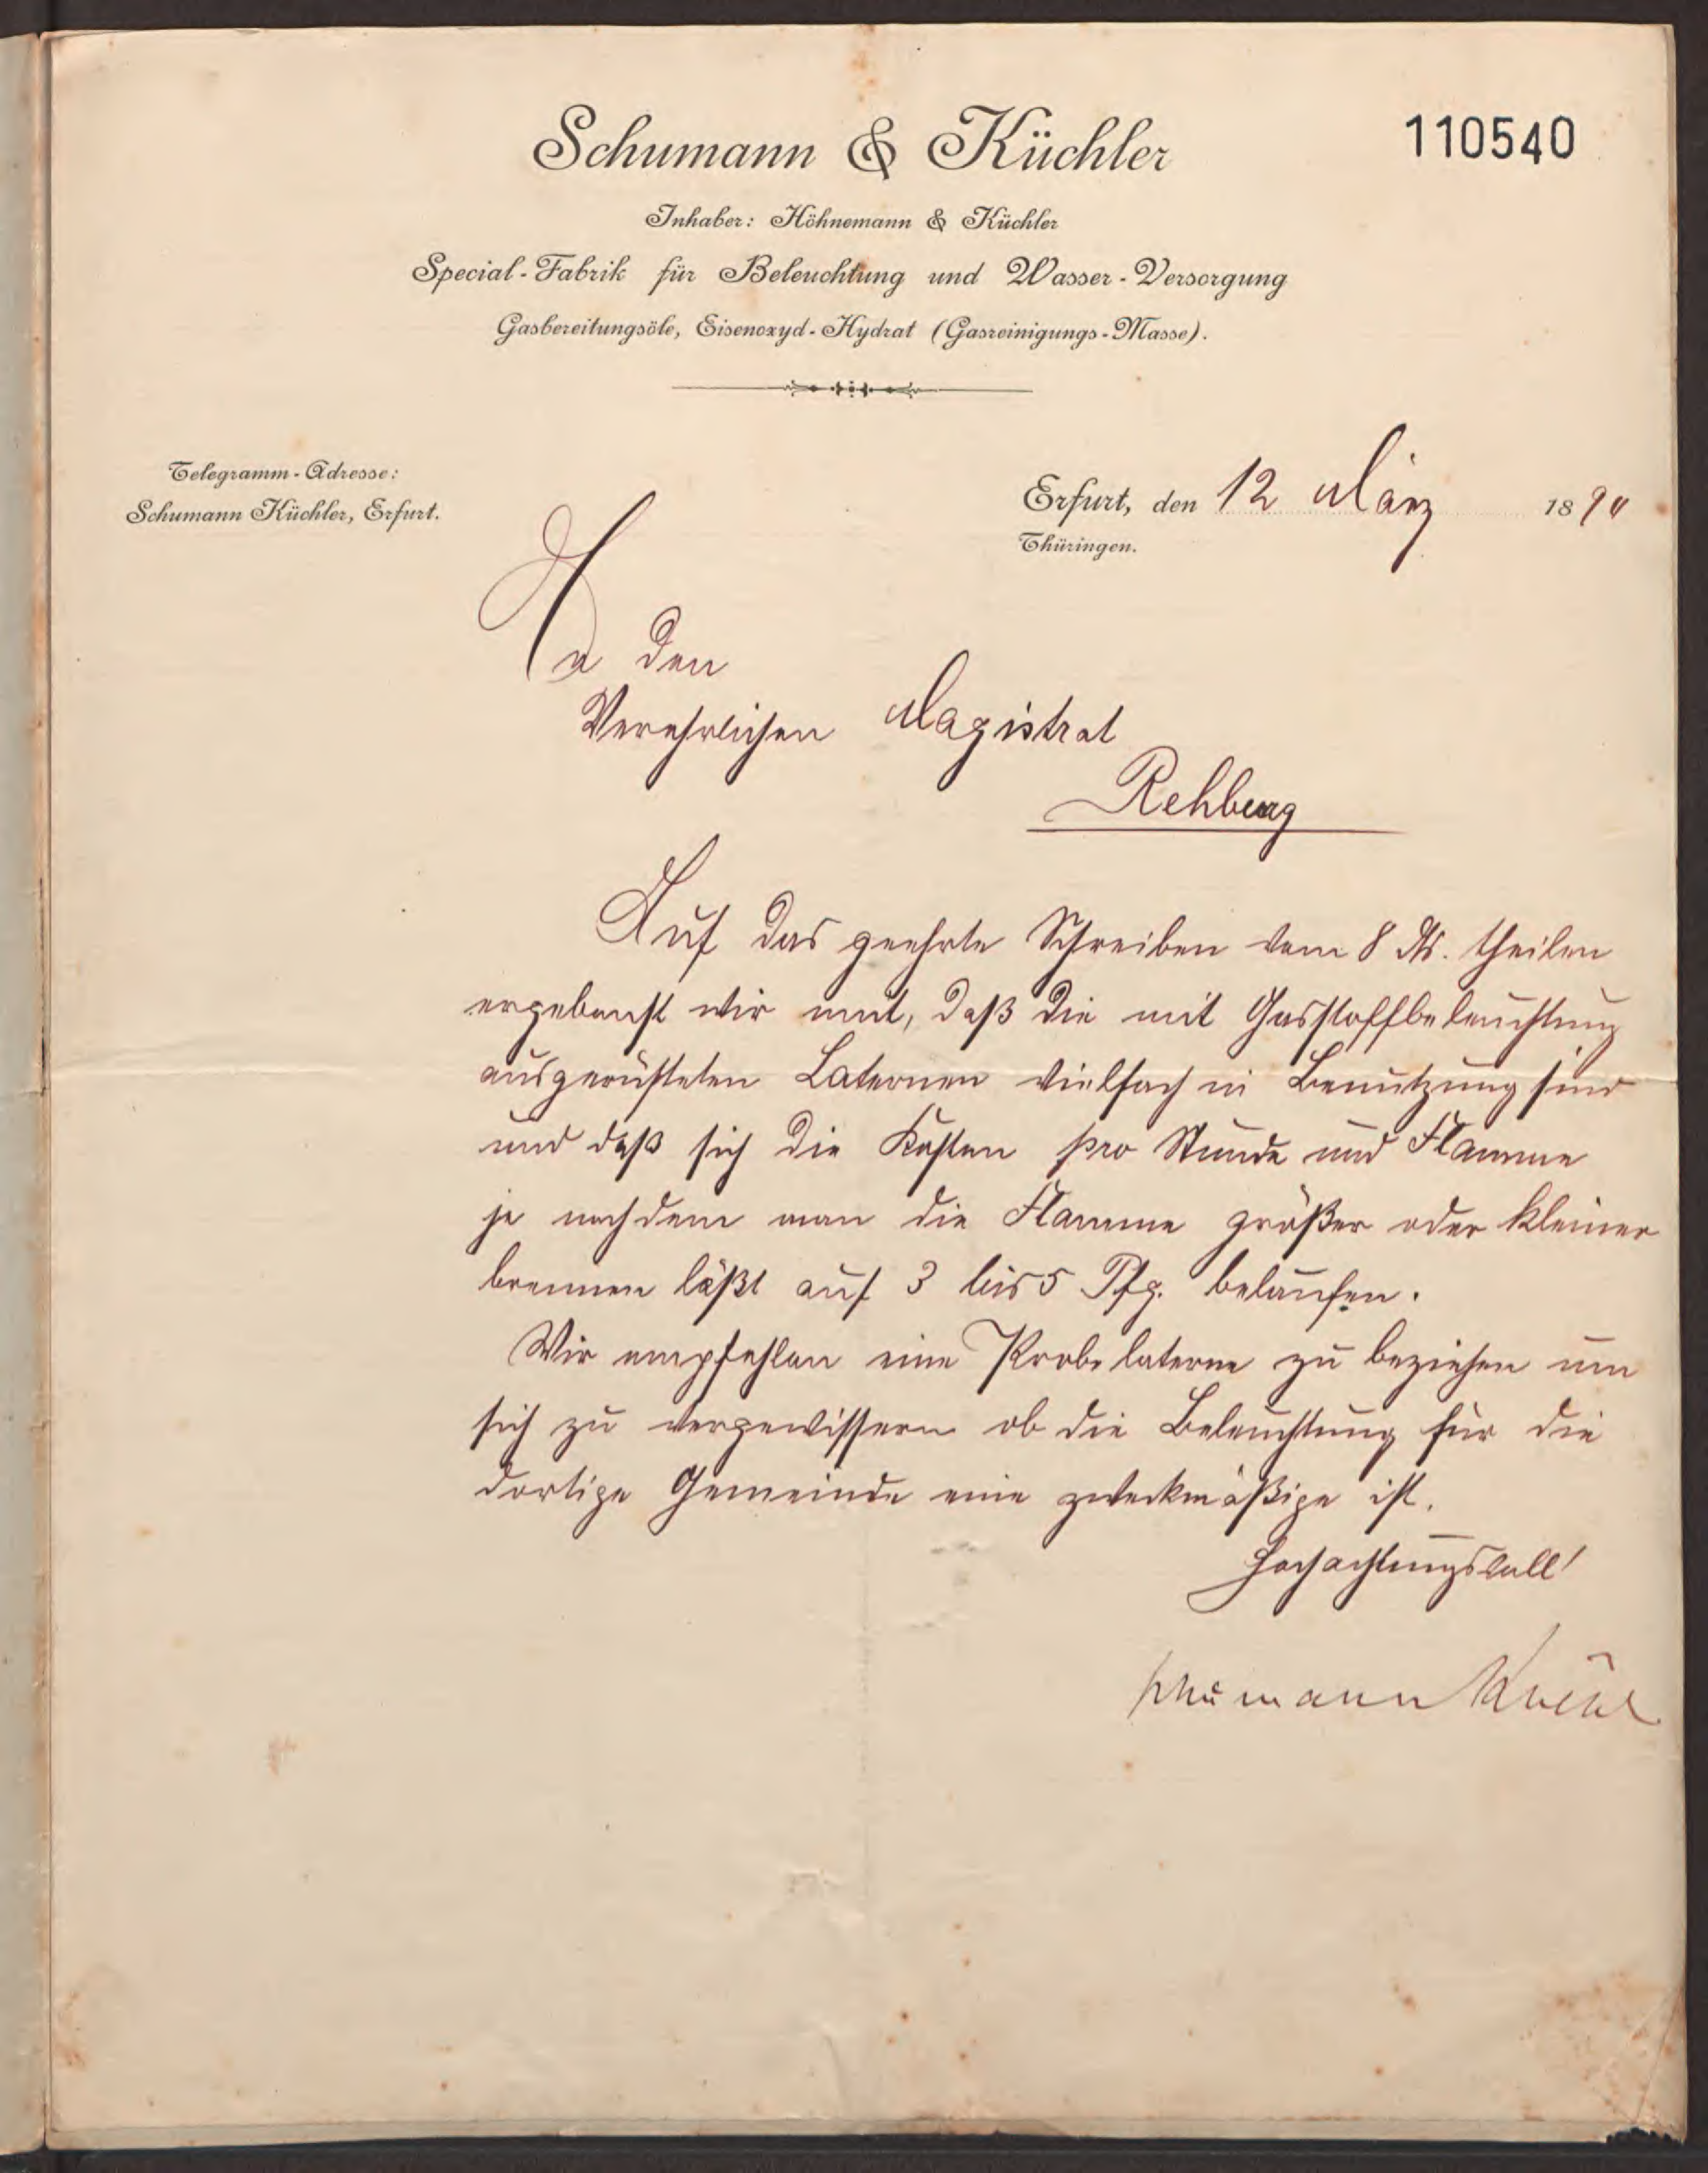 Schumann & Küchler
110540
Inhaber: Höhnemann & Küchler
Special-Fabrik für Beleuchtung und Wasser-Versorgung
Gasbereitungsöle, Eisenoxyd-Hydrat (Gasreinigungs-Masse).
Telegramm-Adresse:
Schumann Küchler, Erfurt.
Erfurt, den 12 März 1890
Thüringen.
An den
Verehrlichen Magistrat
Rehburg
Auf das geehrte Schreiben vom 8 ds. theilen
ergebenst wir mit, daß die mit Gasstoffbeleuchtung
ausgerüsteten Laternen vielfach in Benutzung sind
und daß sich die Kosten pro Stunde und Flamme
je nachdem man die Flamme größer oder kleiner
brennen läßt auf 3 bis 5 Pfg. belaufen.
Wir empfehlen eine Probelaterne zu beziehen um
sich zu vergewissern ob die Beleuchtung für die
dortige Gemeinde eine zweckmäßige ist.
Hochachtungsvoll!
Schumann Küchler